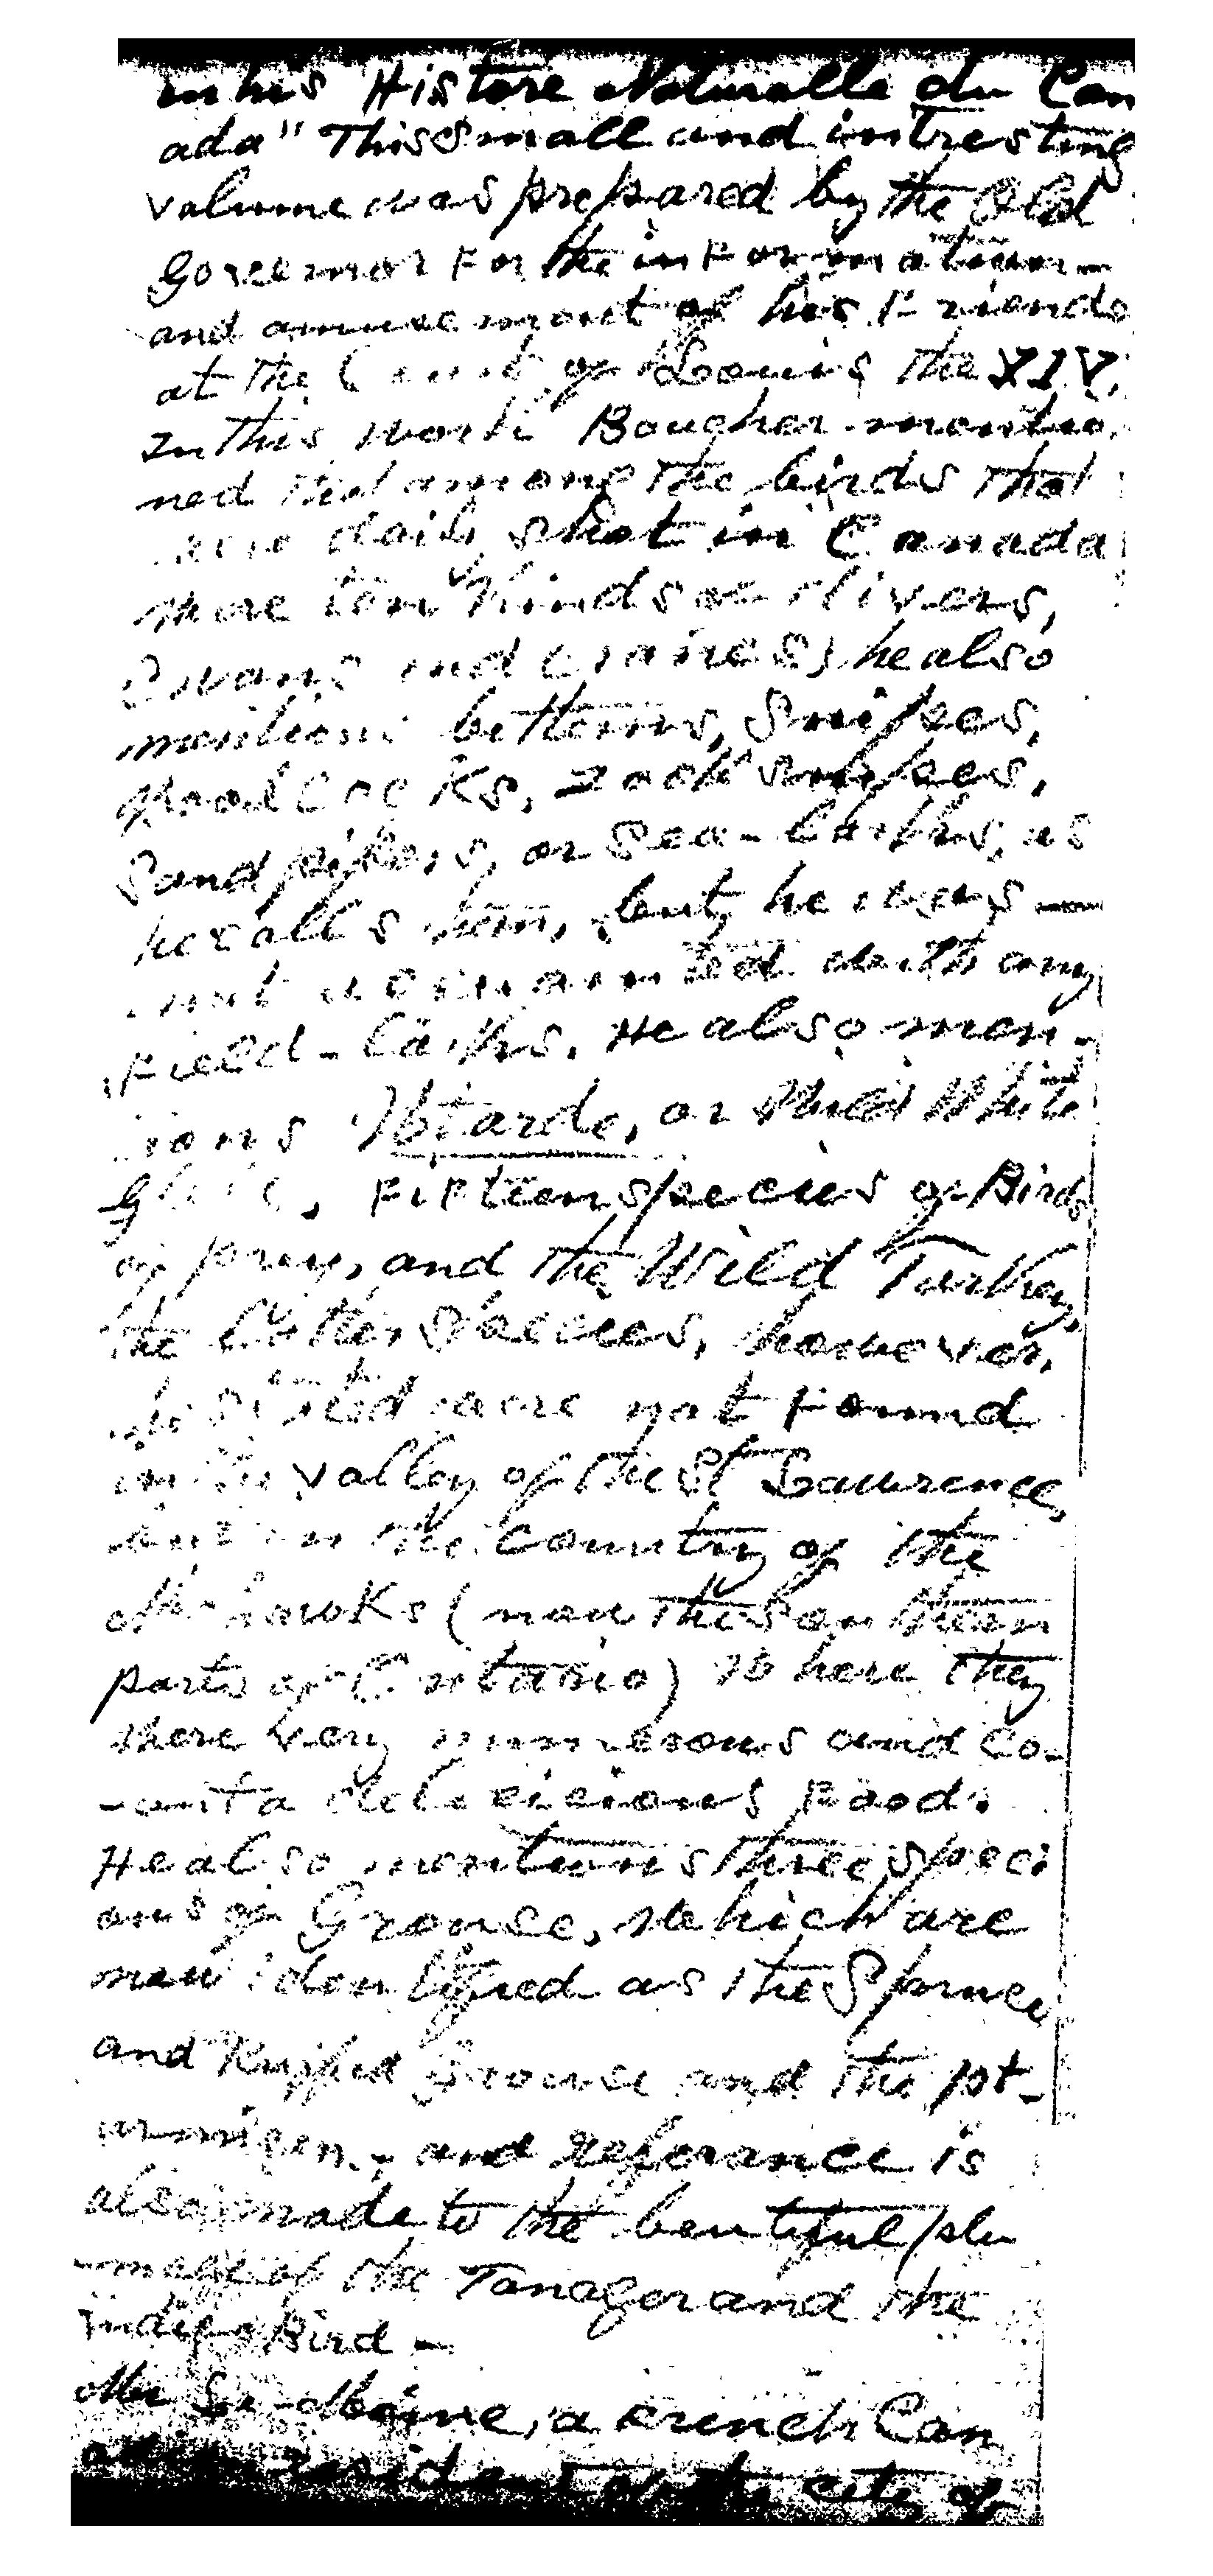 in his Histore Naturalle du Can
ada" This small and intresting
volume was prepared by the Old
Governor For the inFormation
and amusement of his Friends
at the Court of Louis the XIV,
In this work Boucher mentio,
ned that among the birds that
were daily shot in Canada
were ten kinds of divers,
Swans and Craines, he also
mentions bitterns, Snipes,
Woodcocks, rock snipes,
Sandpipers, or Sea-larks, as
he calls them, but he was
not acquainted with any
Field-larks, He also men-
ions Otarde, or Wild White
FiFteen species of Birds
of prey, and the Wild Turkey,
the latter Species, however,
were not Found
in the valley of the St Lawrence,
but in the Country of the
Mohawks (now the Southern
parts of Ontario) where they
were very numerous and co-
Food.
He also mentions three speci
ans of Grouse, which are
now identified as the Spruce
and Ruffed Grouse and the pt-
armigan, and referance is
also made to the beutiful plu
-mage of the Tanager and the
indigo Bird -
Mr Le-Moine, a French Can
resident of the city of